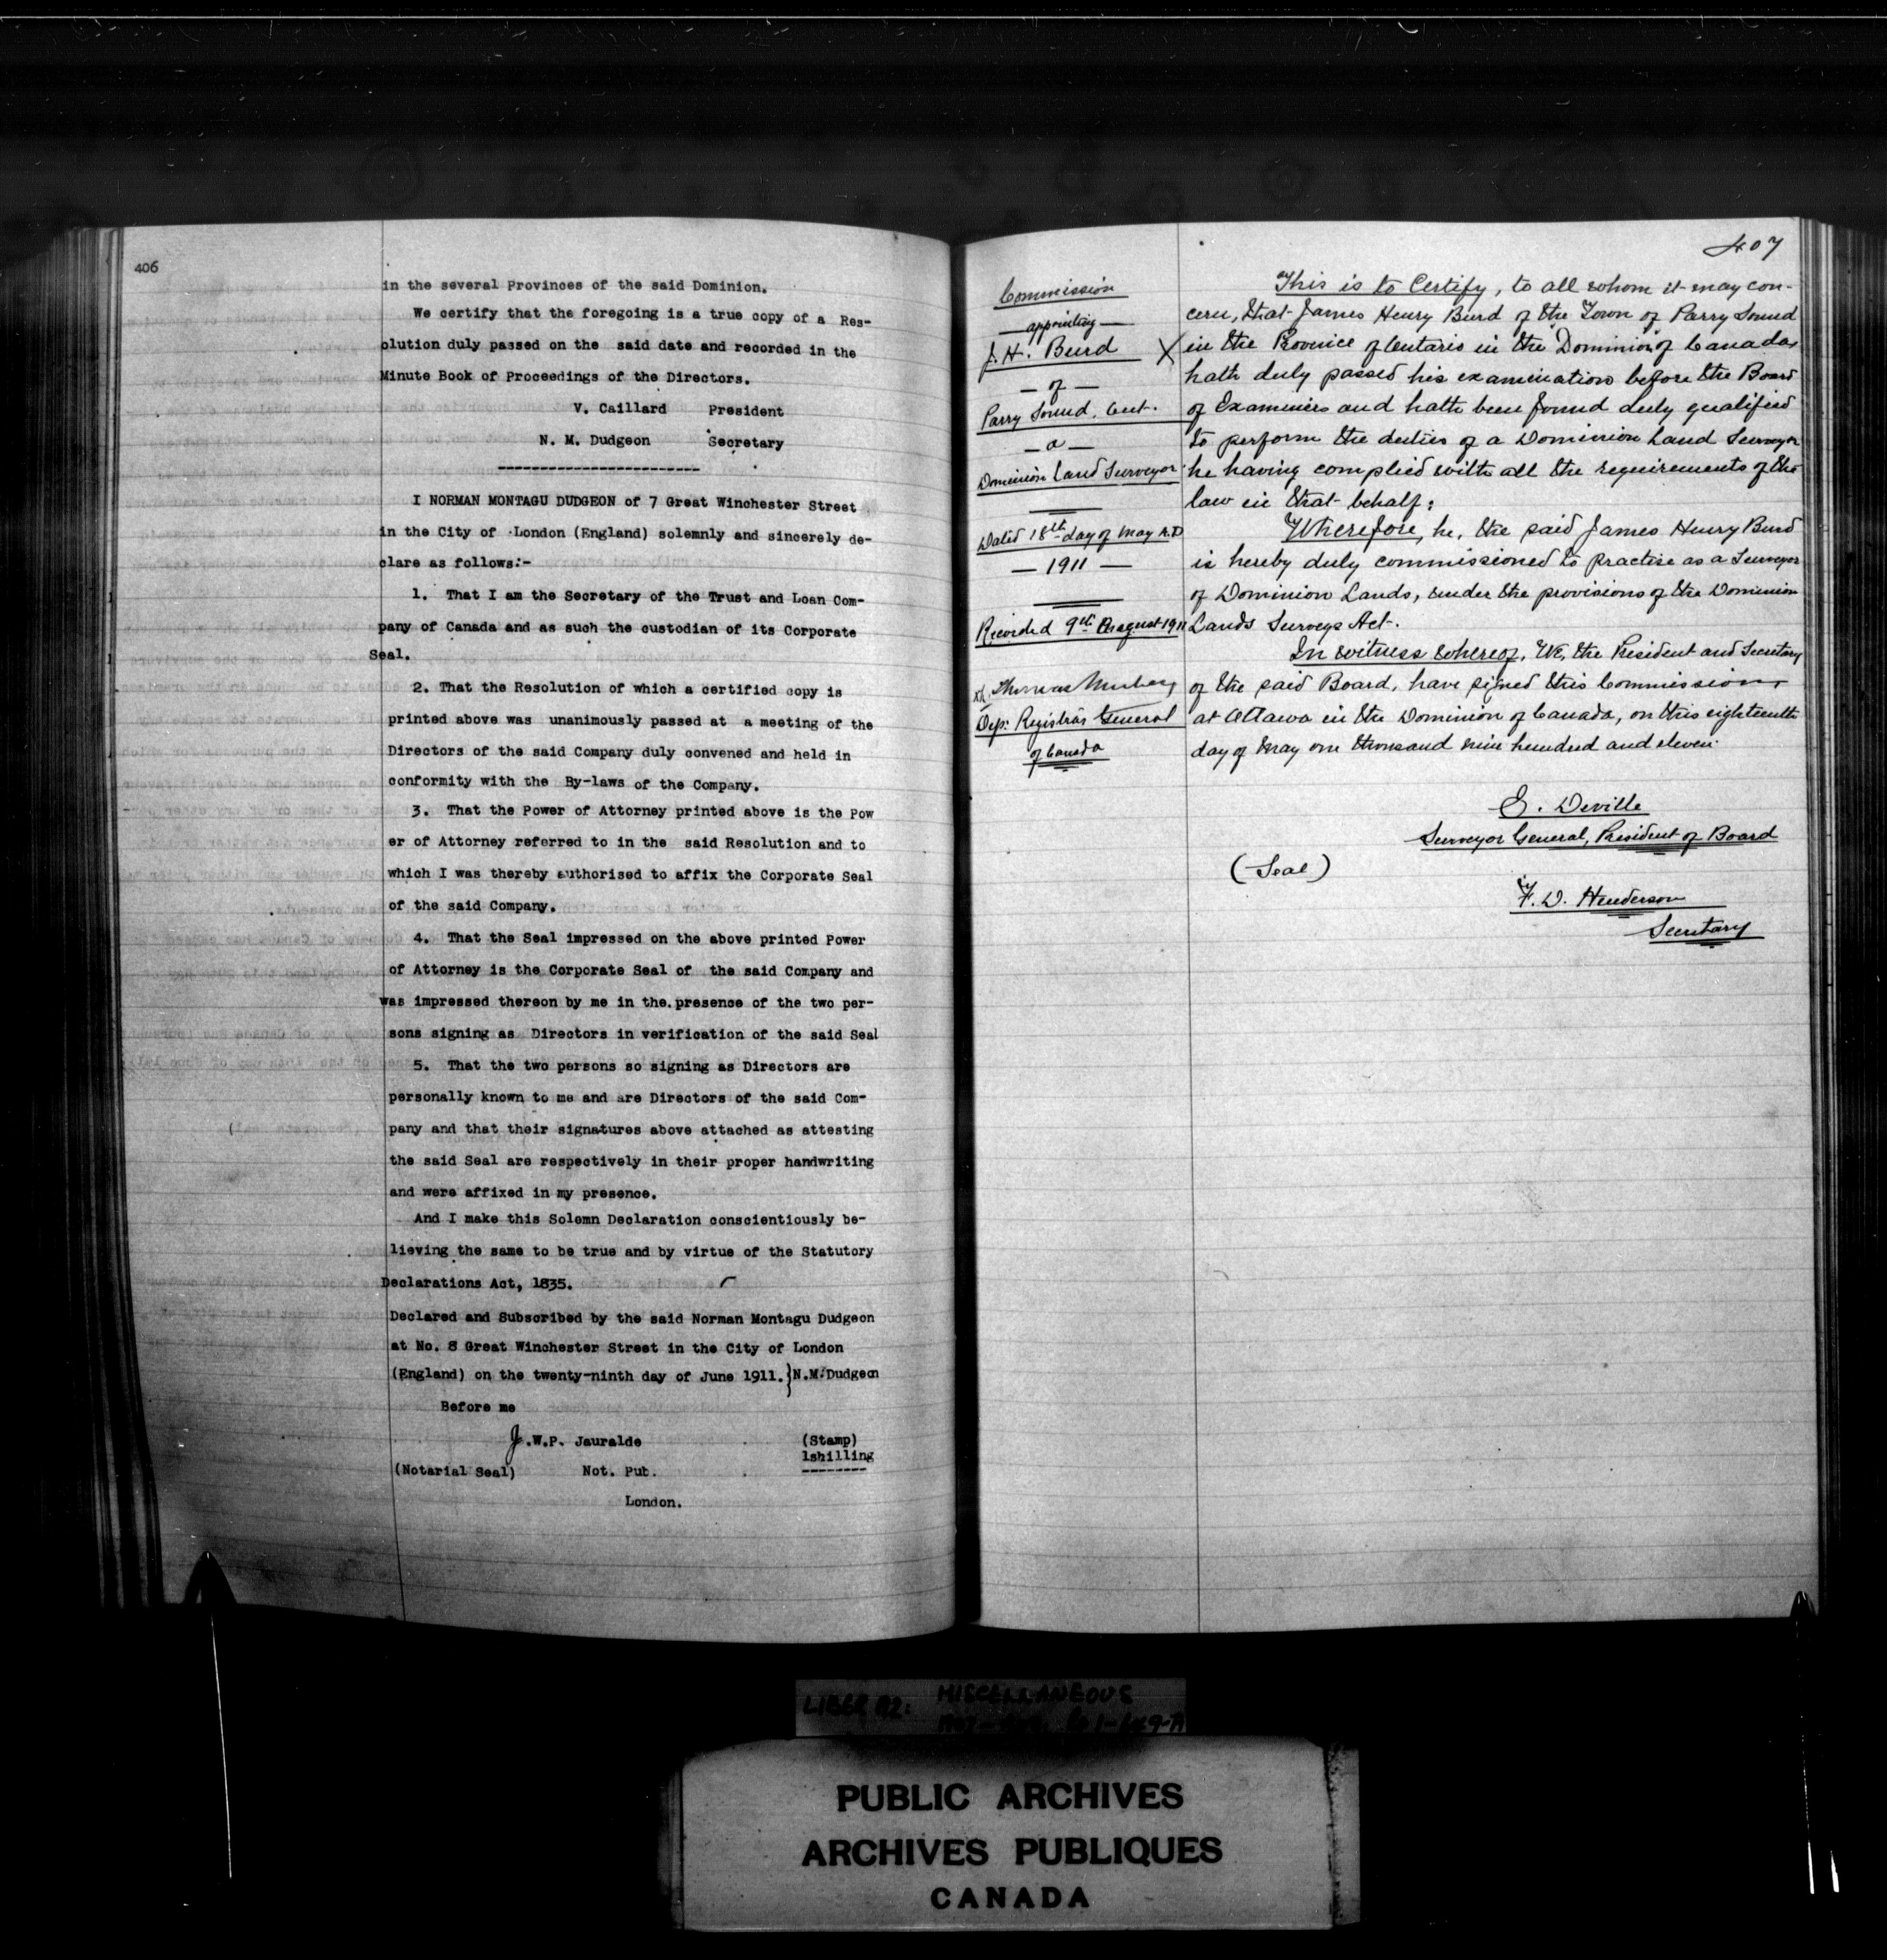 406
in the several Provinces of the said Dominion.
We certify that the foregoing is a true copy of a Res-
olution duly passed on the said date and recorded in the
Minute Book of Proceedings of the Directors.
V. Caillard President
N. M. Dudgeon Secretary
I NORMAN MONTAGU DUDGEON of 7 Great Winchester Street
in the City of London (England) solemnly and sincerely de-
clare as follows:-
1. That I am the Secretary of the Trust and Loan Com-
pany of Canada and as such the custodian of its Corporate
Seal.
2. That the Resolution of which a certified copy is
printed above was unanimously passed at a meeting of the
Directors of the said Company duly convened and held in
conformity with the By-laws of the Company.
3. That the Power of Attorney printed above is the Pow
er of Attorney referred to in the said Resolution and to
which I was thereby authorised to affix the Corporate Seal
of the said Company.
4. That the Seal impressed on the above printed Power
of Attorney is the Corporate Seal of the said Company and
was impressed thereon by me in the presence of the two per-
sons signing as Directors in verification of the said Seal
5. That the two persons so signing as Directors are
personally known to me and are Directors of the said Com-
pany and that their signatures above attached as attesting
the said Seal are respectively in their proper handwriting
and were affixed in my presence.
And I make this Solemn Declaration conscientiously be-
lieving the same to be true and by virtue of the Statutory
Declarations Act, 1835.
Declared and Subscribed by the said Norman Montagu Dudgeon
at No. 8 Great Winchester Street in the City of London
(England) on the twenty-ninth day of June 1911.} N.M. Dudgeon
Before me
J.W.P. Jauralde (Stamp)
1shilling
(Notarial Seal) Not. Pub.
London.
407
Commission
— appointing —
J. H. Burd X
— of —
Parry Sound, Ont.
— a —
Dominion Land Surveyor
Dated 18th day of May A.D
— 1911 —
Recorded 9th August 1911
Thomas
Dep: Registrar General
of Canada
This is to Certify, to all whom it may con-
cern, that James Henry Burd of the Town of Parry Sound
in the Province of Ontario in the Dominion of Canada,
hath duly passed his examination before the Board
of Examiners and hath been found duly qualified
to perform the duties of a Dominion Land Surveyor
he having complied with all the requirements of the
law in that behalf;
Wherefore, he, the said James Henry Burd
is hereby duly commissioned to practise as a Surveyor
of Dominion Lands, under the provisions of the Dominion
Lands Surveys Act.
In witness whereof, We, the President and Secretary
of the said Board, have signed this Commission,
at Ottawa in the Dominion of Canada, on this eighteenth
day of May one thousand nine hundred and eleven.
E. Deville
Surveyor General, President of Board
(Seal)
F. D. Henderson
Secretary
LIBER 92: MISCELLANEOUS
PUBLIC ARCHIVES
ARCHIVES PUBLIQUES
CANADA